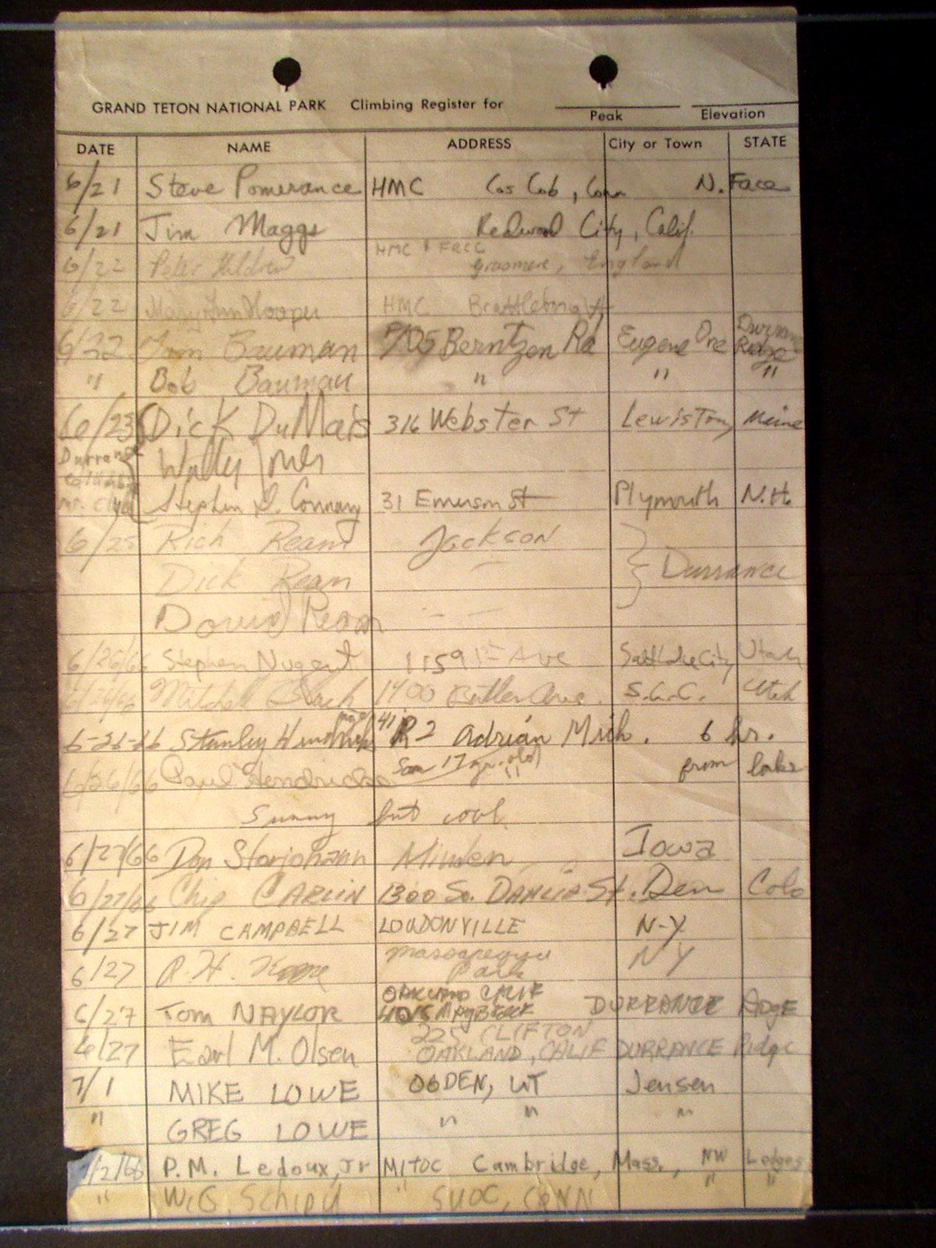 GRAND TETON NATIONAL PARK Climbing Register for
Peak Elevation
DATE NAME ADDRESS City or Town STATE
6/21 Steve Pomerance HMC Cos Cob, Conn N. Face
6/21 Jim Maggs Redwood City, Calif.
HMC & FRCC
6/22 Peter England
6/22 Mary Ann Hooper HMC Brattleboro Vt
6/22 Tom Bauman 2705 Berntzen Rd Eugene Ore Ridge
" Bob Bauman " " "
6/23 Dick DuMais 316 Webster St Lewiston, Maine
Durrance Wally Jones
Stephen D. 31 Emerson St Plymouth N.H.
6/25 Rich Ream Jackson
Dick Ream } Durrance
David Ream — —
6/26/66 Stephen Nugent 1159 1st Ave Salt Lake City Utah
6/26/66 Mitchell 1400 Butler Ave. S.L.C. Utah
6-26-66 Stanley R2 Adrian Mich. 6 hr.
6/26/66 Paul Hendricks Son 17 yr. old from lake
Sunny but cool
6/27/66 Don Storjohann Minden Iowa
6/27/66 Chip CARLIN 1300 So. DAHLIA St. Den Colo
6/27 JIM CAMPBELL LOUDONVILLE N-Y
6/27 R.H. massapequa Park NY
OAKLAND CALIF
6/27 Tom NAYLOR MAYBECK DURRANCE RIDGE
225 CLIFTON
6/27 Earl M. Olsen OAKLAND, CALIF DURRANCE Ridge
7/1 MIKE LOWE OGDEN, UT Jensen
" GREG LOWE " " "
7/2/66 P.M. Ledoux, Jr MITOC Cambridge, Mass., NW Ledges
" W.G. " CONN " "